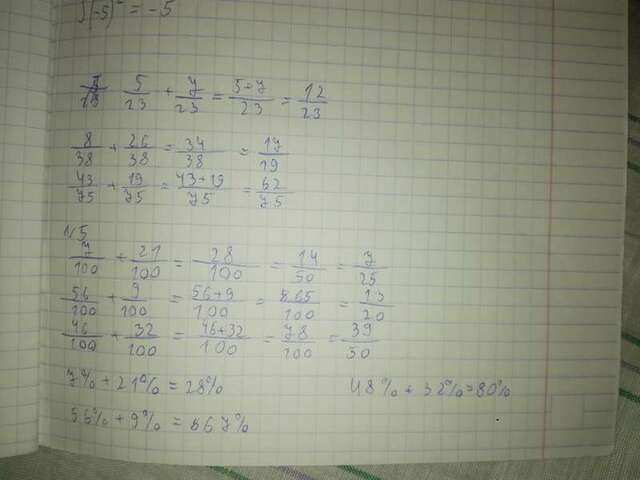 √(-5)² = -5
5/23 + 7/23 = 5+7/23 = 12/23
8/38 + 26/38 = 34/38 = 17/19
43/75 + 19/75 = 43+19/75 = 62/75
№5
7/100 + 21/100 = 28/100 = 14/50 = 7/25
56/100 + 9/100 = 56+9/100 = 65/100 = 13/20
46/100 + 32/100 = 46+32/100 = 78/100 = 39/50
7% + 21% = 28% 48% + 32% = 80%
56% + 9% = 67%